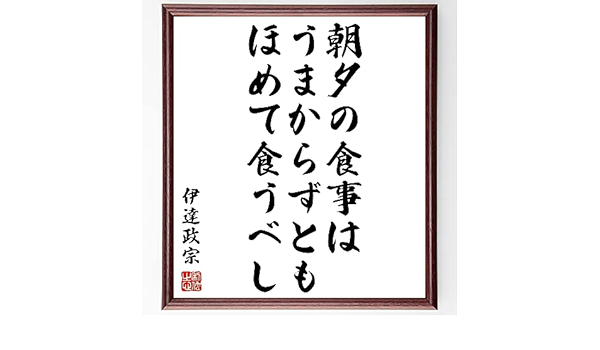 朝夕の食事は
うまからずとも
ほめて食うべし
伊達政宗